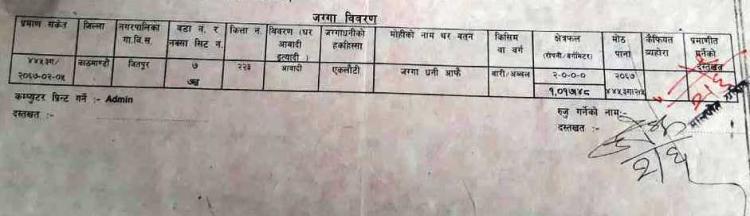 जग्गा विवरण
प्रमाण संकेत जिल्ला नगरपालिका गा.वि.स. वडा नं. र नक्सा सिट नं. कित्ता नं. विवरण (घर आवादी इत्यादी) जग्गाधनीको हकहिस्सा मोहीको नाम थर वतन किसिम वा वर्ग क्षेत्रफल (रोपनी/वर्गमिटर) मोठ पाना कैफियत व्यहोरा प्रमाणीत गर्नेको दस्तखत
४४५३१/ २०६७-०२-०५ काठमाण्डौ जितपुर ७ ७ख २२३ आवादी एकलौटी जग्गा धनी आफै बारी/अब्बल २-०-०-० २०६७
१,०१७.४८
कम्प्युटर प्रिन्ट गर्ने :- Admin
रुजु गर्नेको नाम:-
दस्तखत :-
दस्तखत :-